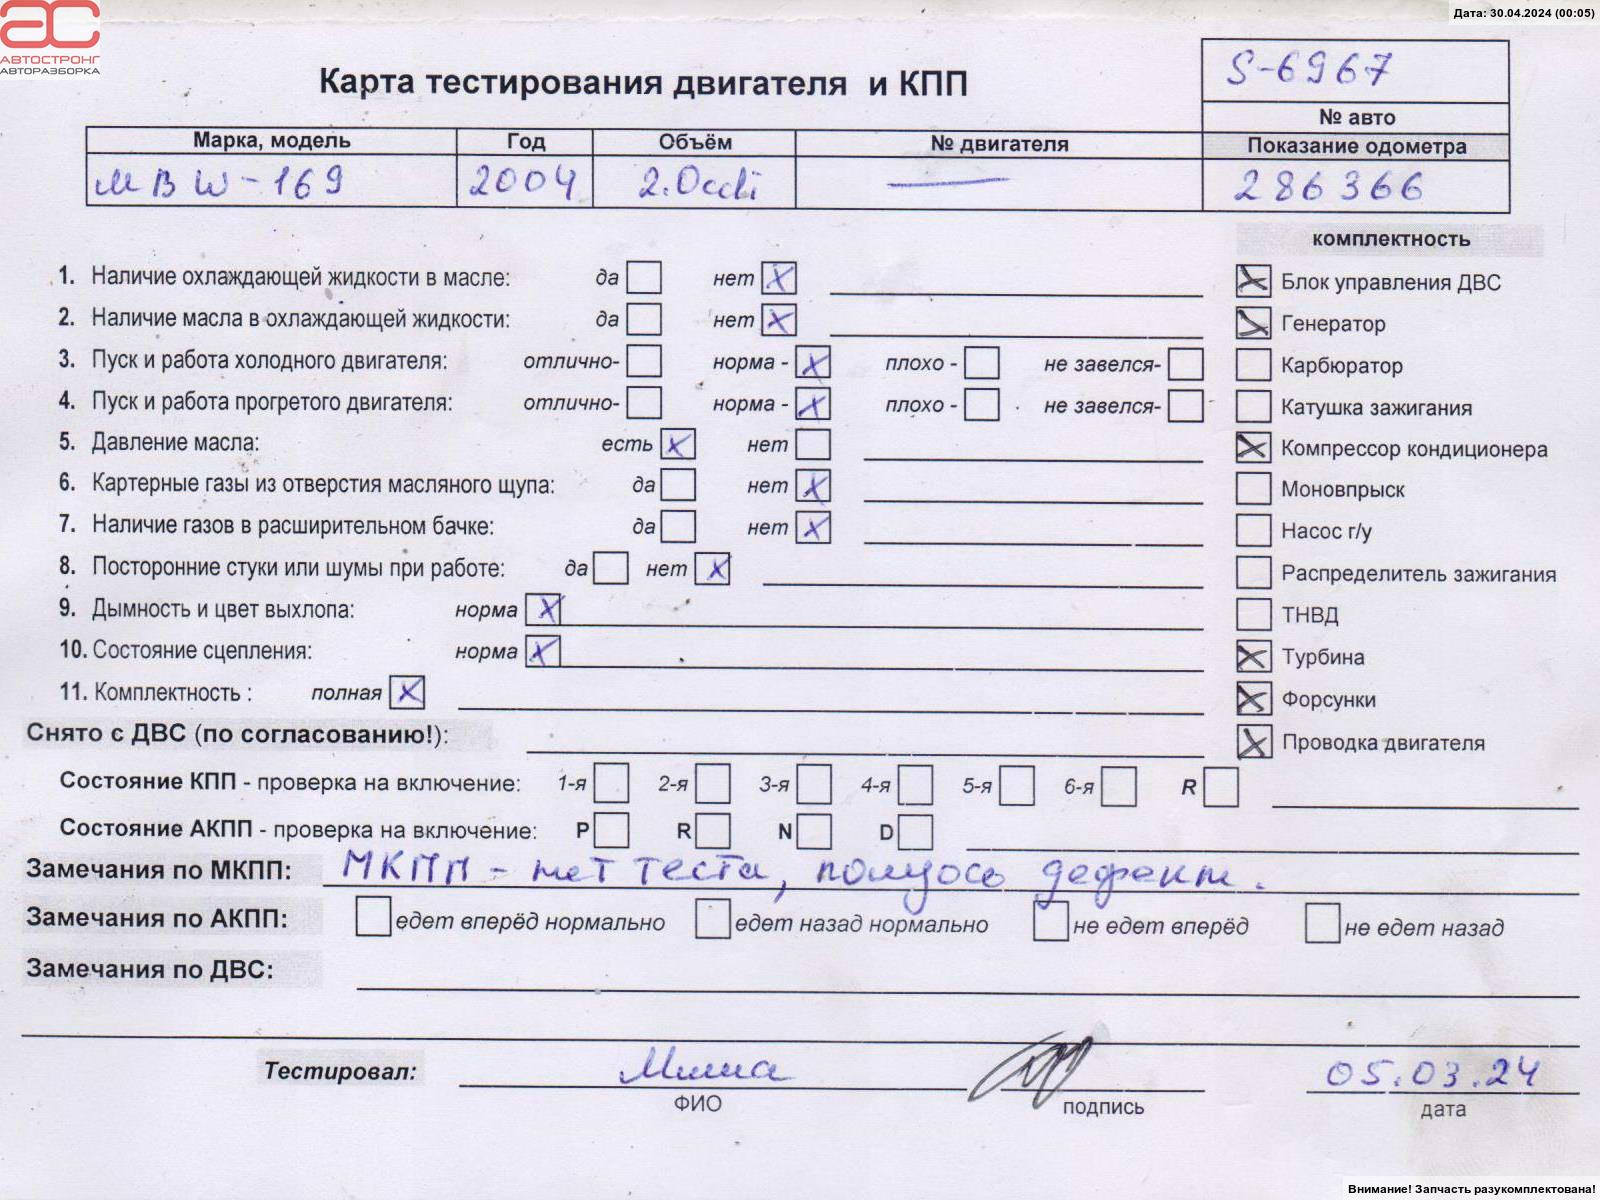 Дата: 30.04.2024 (00:05)
АВТОСТРОНГ
АВТОРАЗБОРКА
Карта тестирования двигателя и КПП
S-6967
№ авто
Марка, модель Год Объём № двигателя Показание одометра
MBW-169 2004 2.0cdi — 286366
комплектность
1. Наличие охлаждающей жидкости в масле: да нет X
X Блок управления ДВС
2. Наличие масла в охлаждающей жидкости: да нет X
X Генератор
3. Пуск и работа холодного двигателя: отлично- норма - X плохо - не завелся-
Карбюратор
4. Пуск и работа прогретого двигателя: отлично- норма - X плохо - не завелся-
Катушка зажигания
5. Давление масла: есть X нет
X Компрессор кондиционера
6. Картерные газы из отверстия масляного щупа: да нет X
Моновпрыск
7. Наличие газов в расширительном бачке: да нет X
Насос г/у
8. Посторонние стуки или шумы при работе: да нет X
Распределитель зажигания
9. Дымность и цвет выхлопа: норма X
ТНВД
10. Состояние сцепления: норма X
X Турбина
11. Комплектность : полная X
X Форсунки
Снято с ДВС (по согласованию!):
X Проводка двигателя
Состояние КПП - проверка на включение: 1-я 2-я 3-я 4-я 5-я 6-я R
Состояние АКПП - проверка на включение: P R N D
Замечания по МКПП: МКПП - нет теста, полуось дефект.
Замечания по АКПП: едет вперёд нормально едет назад нормально не едет вперёд не едет назад
Замечания по ДВС:
Тестировал: 05.03.24
ФИО подпись дата
Внимание! Запчасть разукомплектована!